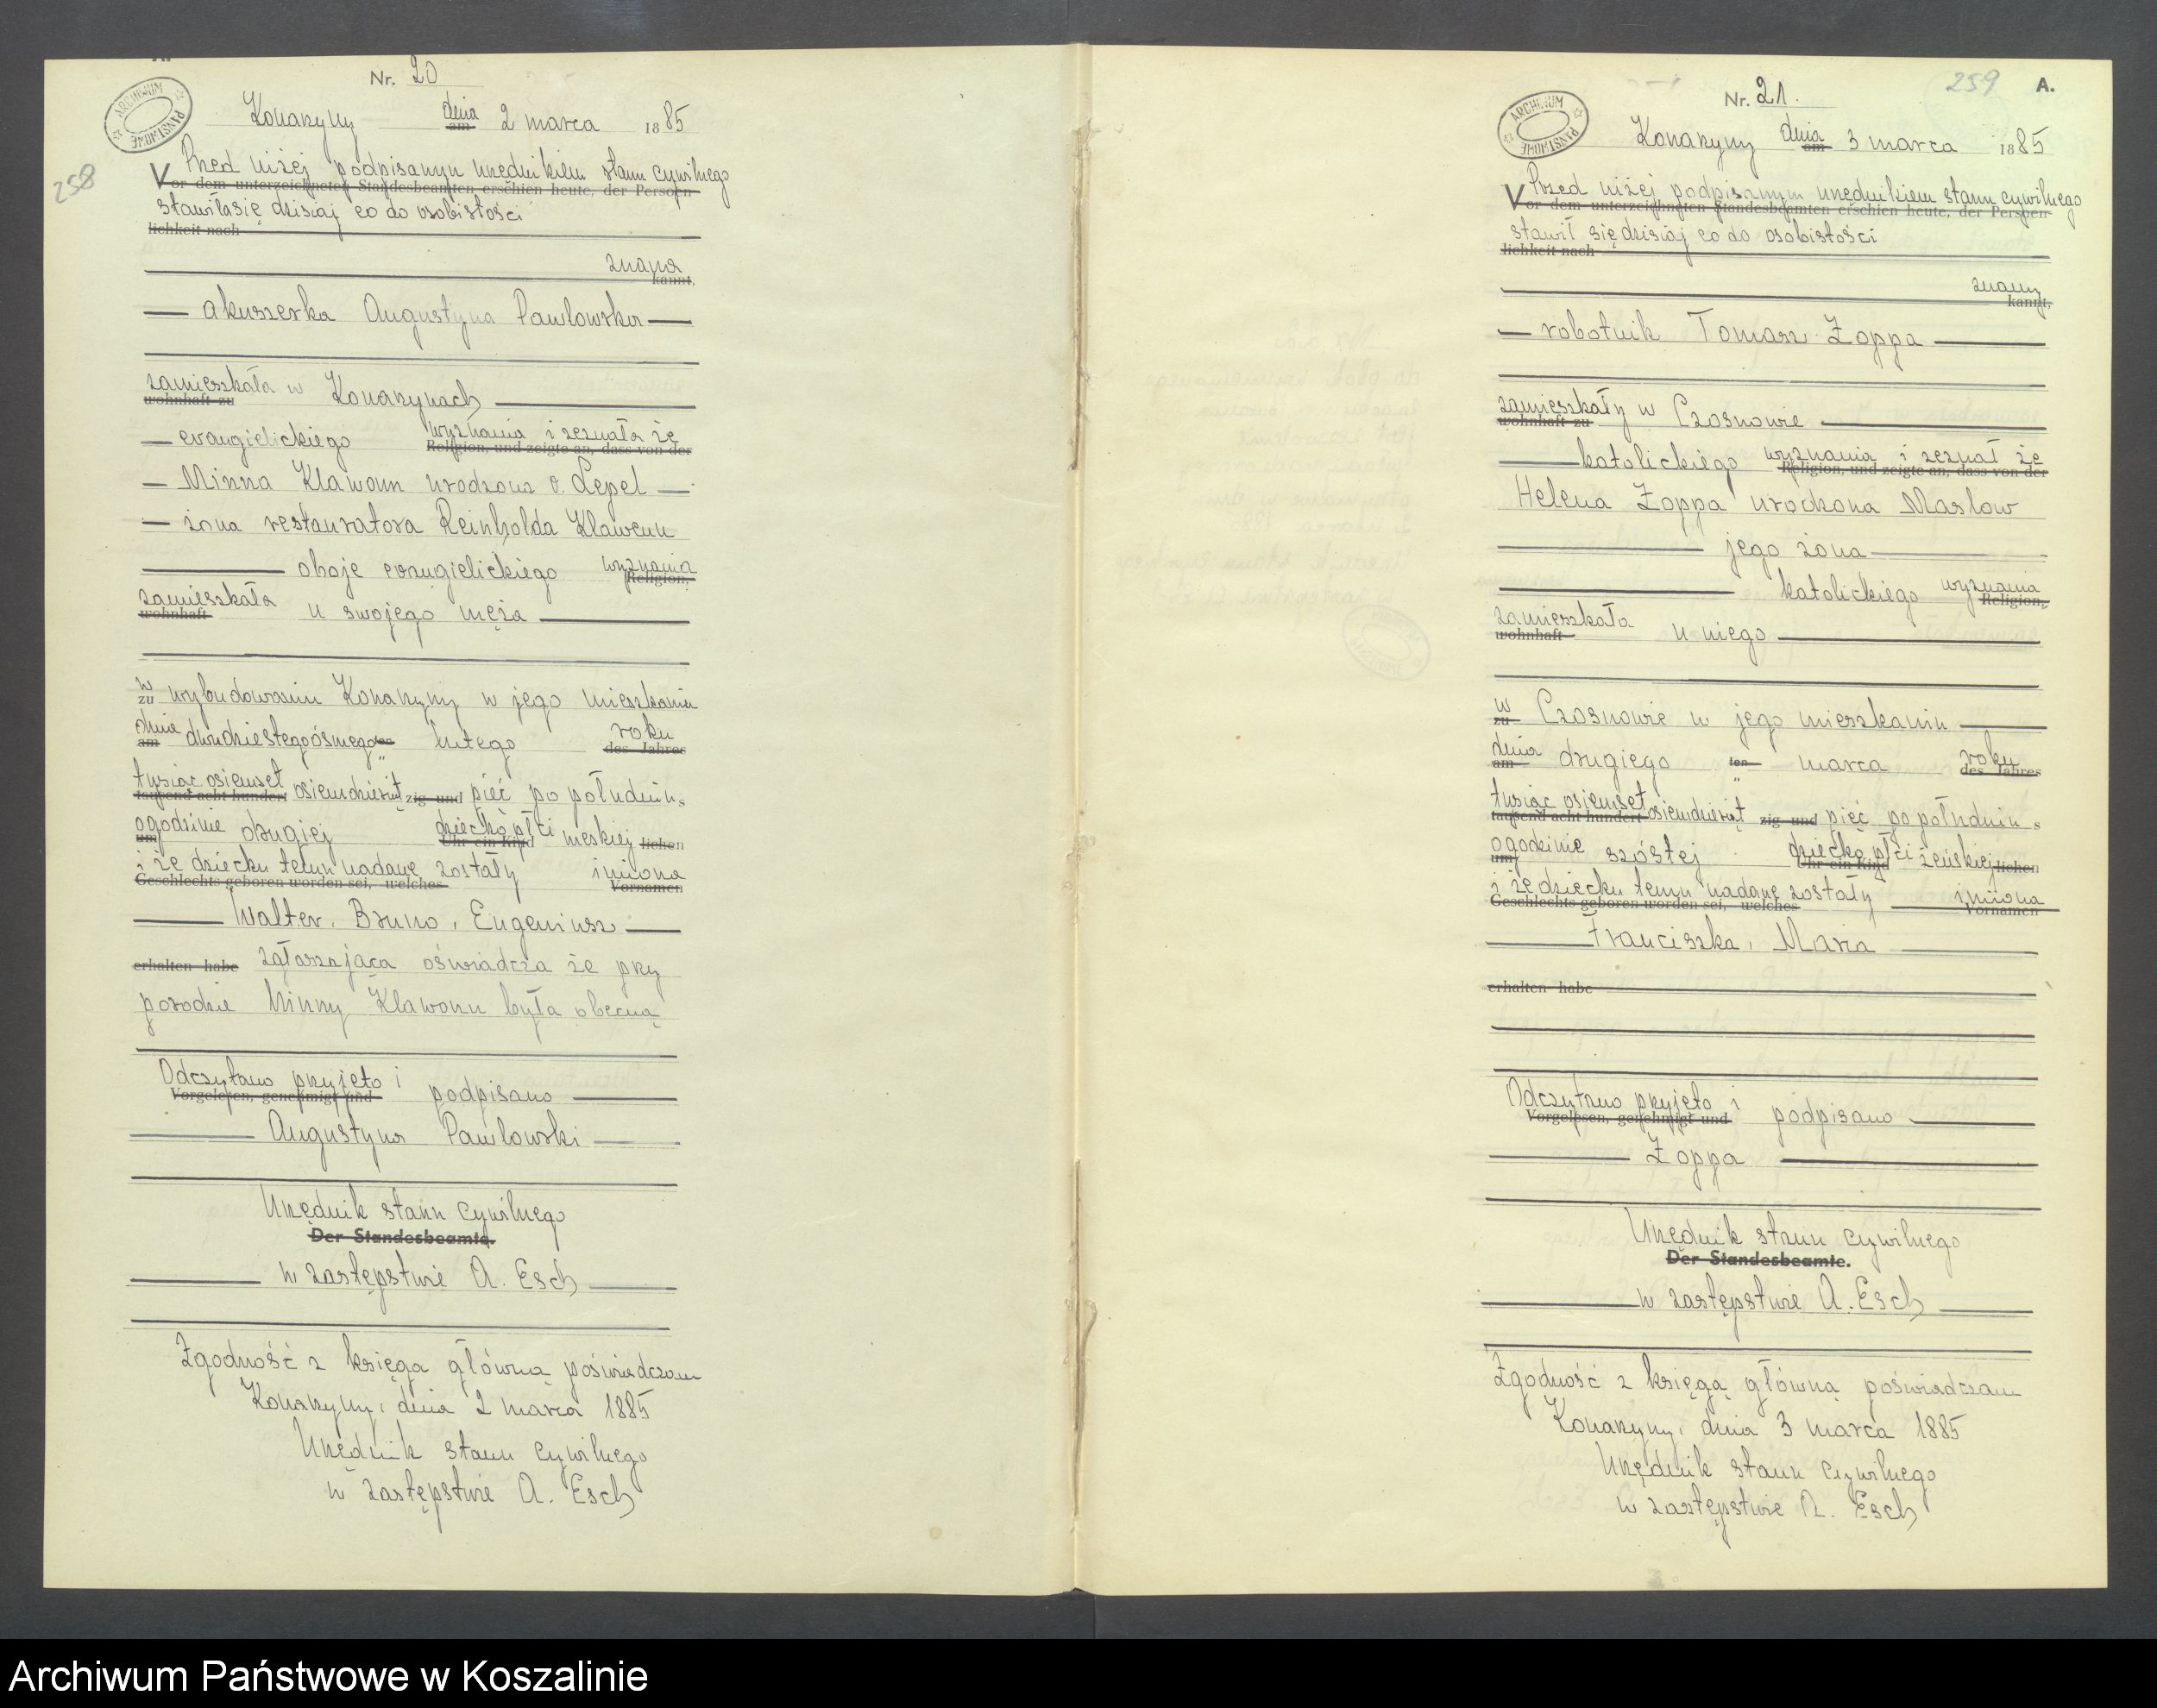 A.
ARCHIWUM PAŃSTWOWE
Nr. 20
Konarzyny dnia am 2 marca 1885
258
Przed niżej podpisanym urzędnikiem stanu cywilnego
Vor dem unterzeichneten Standesbeamten erschien heute, der Persoen-
stawiła się dzisiaj co do osobistości
lichkeit nach
znana
kannt,
akuszerka Augustyna Pawlowska
zamieszkała w Konarzynach
wohnhaft zu
ewangielickiego wyznania i zeznała że
Religion, und zeigte an, dass von der
Minna Klawonn urodzona v. Lepel
żona restauratora Reinholda Klawonn
oboje ewangielickiego wyznania
Religion,
zamieszkała u swojego męża
wohnhaft
w wybudowaniu Konarzyny w jego mieszkaniu
zu
dnia dwudziestegoósmego lutego roku
am ten des Jahres
tysiąc osiemset osiemdziesiąt pięć po południu
tausend acht hundert zig und s
o godzinie drugiej dziecko płci męskiej
um Uhr ein Kind lichen
i że dziecku temu nadane zostały imiona
Geschlechts geboren worden sei, welches Vornamen
Walter, Bruno, Eugeniusz
erhalten habe zgłaszająca oświadcza że przy
porodzie Minny Klawonn była obecną
Odczytano przyjęto i podpisano
Vorgelesen, genehmigt und
Augustyna Pawlowski
Urzędnik stanu cywilnego
Der Standesbeamte.
w zastępstwie A. Esch
Zgodność z księgą główną poświadczam
Konarzyny, dnia 2 marca 1885
Urzędnik stanu cywilnego
w zastępstwie A. Esch
259 A.
ARCHIWUM PAŃSTWOWE
Nr. 21.
Konarzyny dnia am 3 marca 1885
Przed niżej podpisanym urzędnikiem stanu cywilnego
Vor dem unterzeichneten Standesbeamten erschien heute, der Persoen-
stawił się dzisiaj co do osobistości
lichkeit nach
znany
kannt,
robotnik Tomasz Żoppa
zamieszkały w Czosnowie
wohnhaft zu
katolickiego wyznania i zeznał że
Religion, und zeigte an, dass von der
Helena Żoppa urodzona Maslow
jego żona
katolickiego wyznania
Religion,
zamieszkała u niego
wohnhaft
w Czosnowie w jego mieszkaniu
zu
dnia drugiego marca roku
am ten des Jahres
tysiąc osiemset osiemdziesiąt pięć po południu
tausend acht hundert zig und s
o godzinie szóstej dziecko płci żeńskiej
um Uhr ein Kind lichen
i że dziecku temu nadane zostały imiona
Geschlechts geboren worden sei, welches Vornamen
Franciszka, Maria
erhalten habe
Odczytano przyjęto i podpisano
Vorgelesen, genehmigt und
Żoppa
Urzędnik stanu cywilnego
Der Standesbeamte.
w zastępstwie A. Esch
Zgodność z księgą główną poświadczam
Konarzyny, dnia 3 marca 1885
Urzędnik stanu cywilnego
w zastępstwie A. Esch
Archiwum Państwowe w Koszalinie